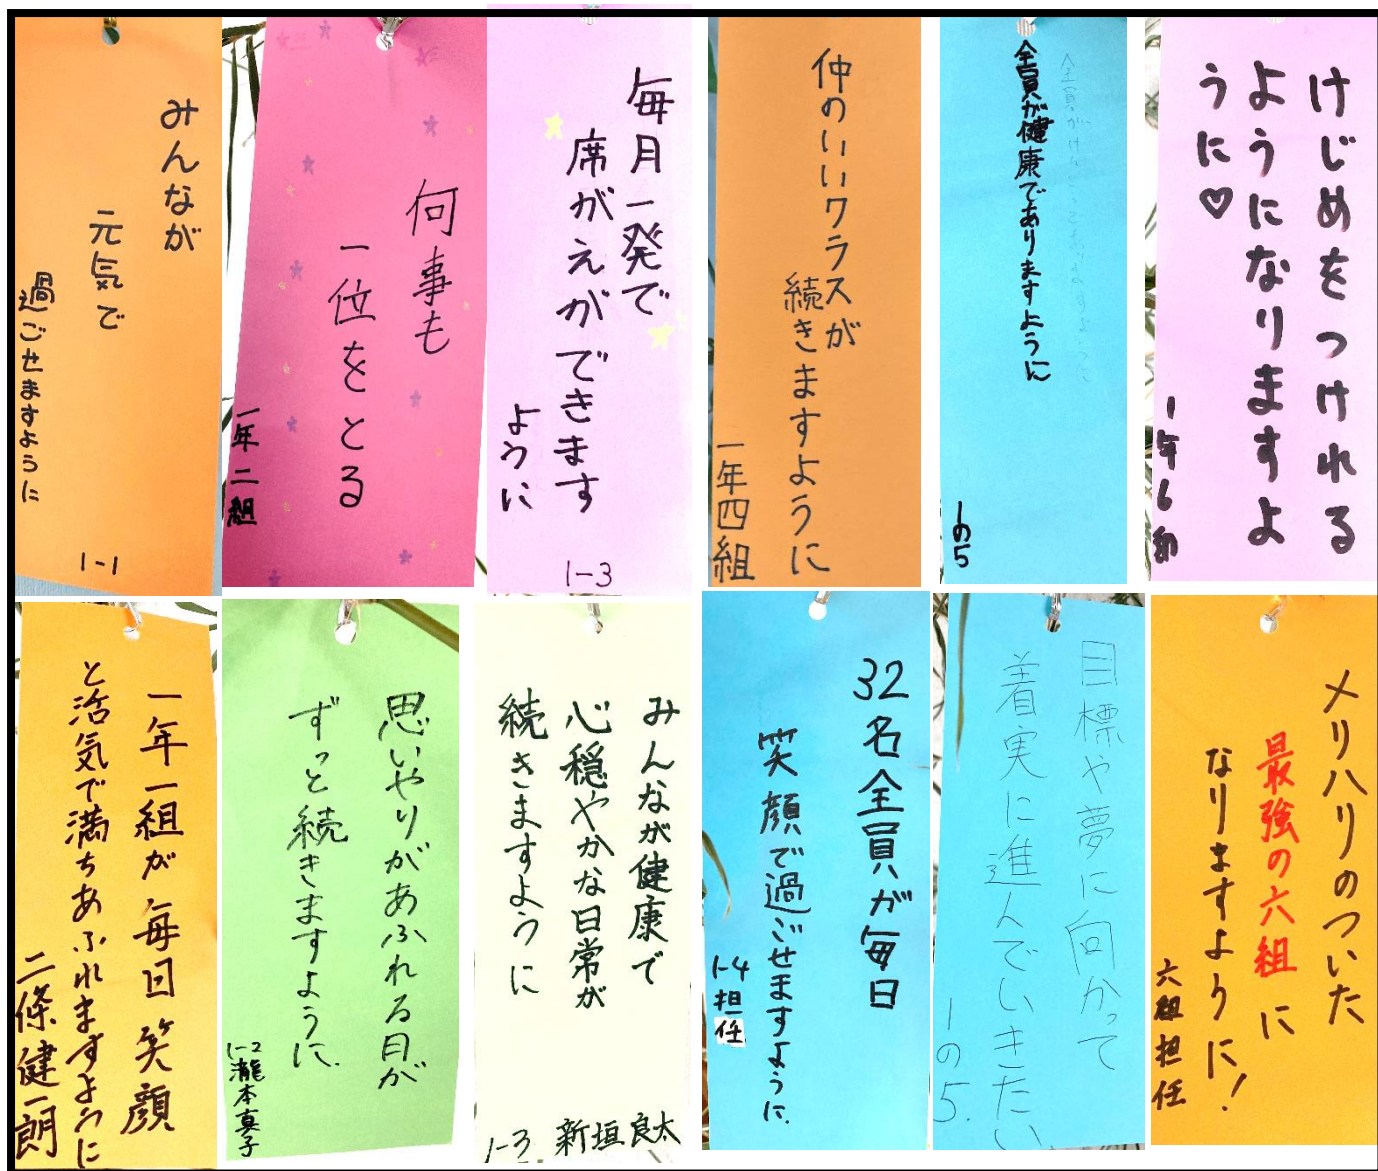 みんなが
元気で
過ごせますように
1-1
何事も
一位をとる
一年二組
毎月一発で
席がえができます
ように
1-3
仲のいいクラスが
続きますように
一年四組
全員が健康でありますように
1の5
けじめをつけれる
ようになりますよ
うに♡
1年6組
一年一組が毎日笑顔
と活気で満ちあふれますように
二條健一朗
思いやりがあふれる日が
ずっと続きますように
1-2瀧本真子
みんなが健康で
心穏やかな日常が
続きますように
1-3 新垣良太
32名全員が毎日
笑顔で過ごせますように
1-4担任
目標や夢に向かって
着実に進んでいきたい
1の5.
メリハリのついた
最強の六組に
なりますように!
六組担任